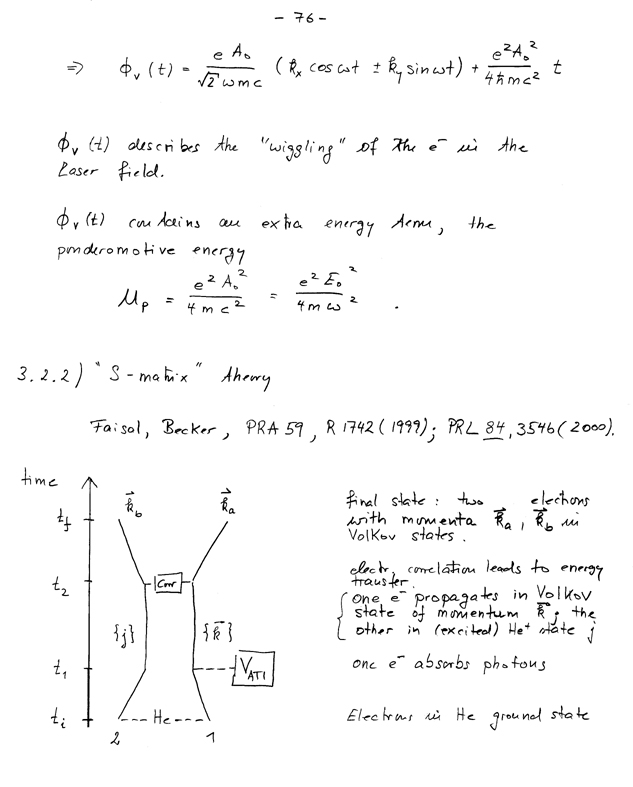 - 76 -
⇒ ϕᵥ(t) = e A₀ / √2 ω m c (kₓ cos ωt ± k_y sin ωt) + e²A₀² / 4ħmc² t
ϕᵥ(t) describes the "wiggling" of the e⁻ in the
Laser field.
ϕᵥ(t) contains an extra energy term, the
ponderomotive energy
μ_p = e² A₀² / 4 m c² = e² E₀² / 4 m ω² .
3.2.2) "S-matrix" theory
Faisal, Becker, PRA 59, R 1742 (1999); PRL 84, 3546 (2000).
time
k⃗_b k⃗_a
final state : two electrons
t_f
with momenta k⃗_a, k⃗_b in
Volkov states.
electr. correlation leads to energy
t₂ Corr
transfer.
one e⁻ propagates in Volkov
state of momentum k⃗; the
{j} {k⃗}
other in (excited) He⁺ state j
t₁ V_ATI
one e⁻ absorbs photons
t_i --- He ---
Electrons in He ground state
2 1